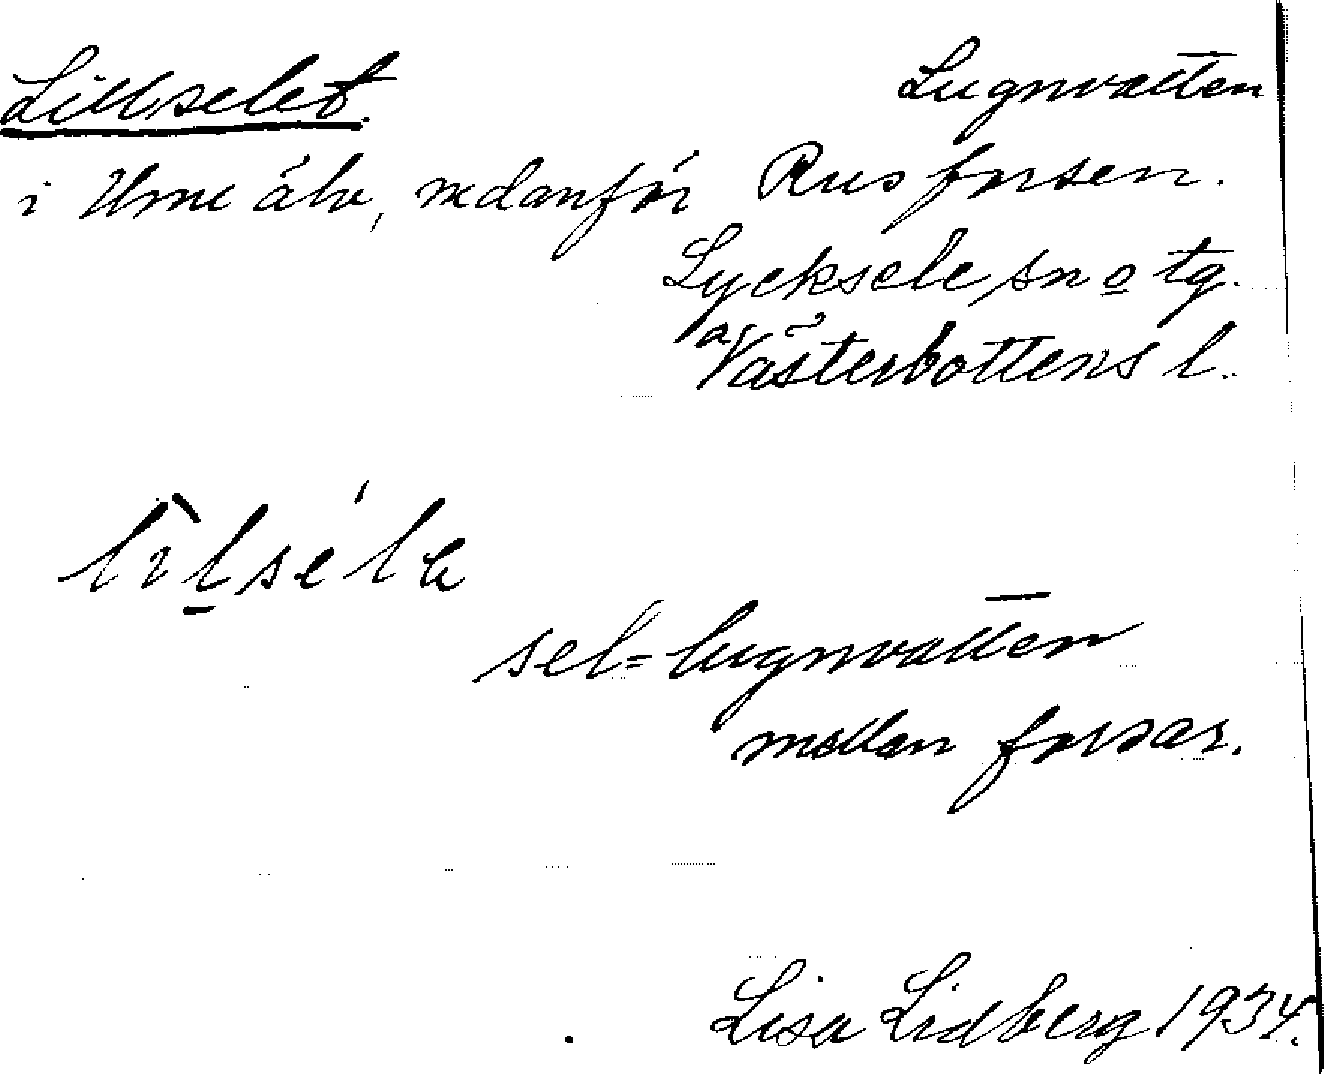 Lillselet. Lugnvatten
i Ume älv, nedanför Rusforsen.
Lycksele sn o tg.
Västerbottens l.
sel = lugnvatten
mellan forsar.
Lisa Lidberg 1934.